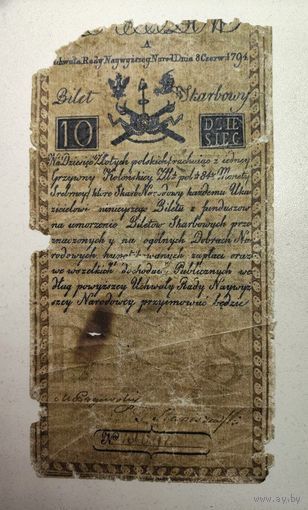 A
Uchwała Rady Naywyższey Narod: Dnia 8 Czerw: 1794
Bilet Skarbowy
10 DZIE
SIĘĆ
Na Dziesięć Złotych polskich rachuiąc z iedney
Grzywny Kolońskiey Złł: pol: 84 ½ Monety
Srebrney, które Skarb Narodowy każdemu Uka
zicielowi ninieyszego Biletu z funduszow
na umorzenie Biletow Skarbowych prze
znaczonych y na ogolnych Dobrach Na
rodowych hypotekowanych zapłaci oraz
we wszelkich dochodach Publicznych we
dług powyższey Uchwały Rady Naywyż
szey Narodowey przyimować będzie
No
www.ay.by